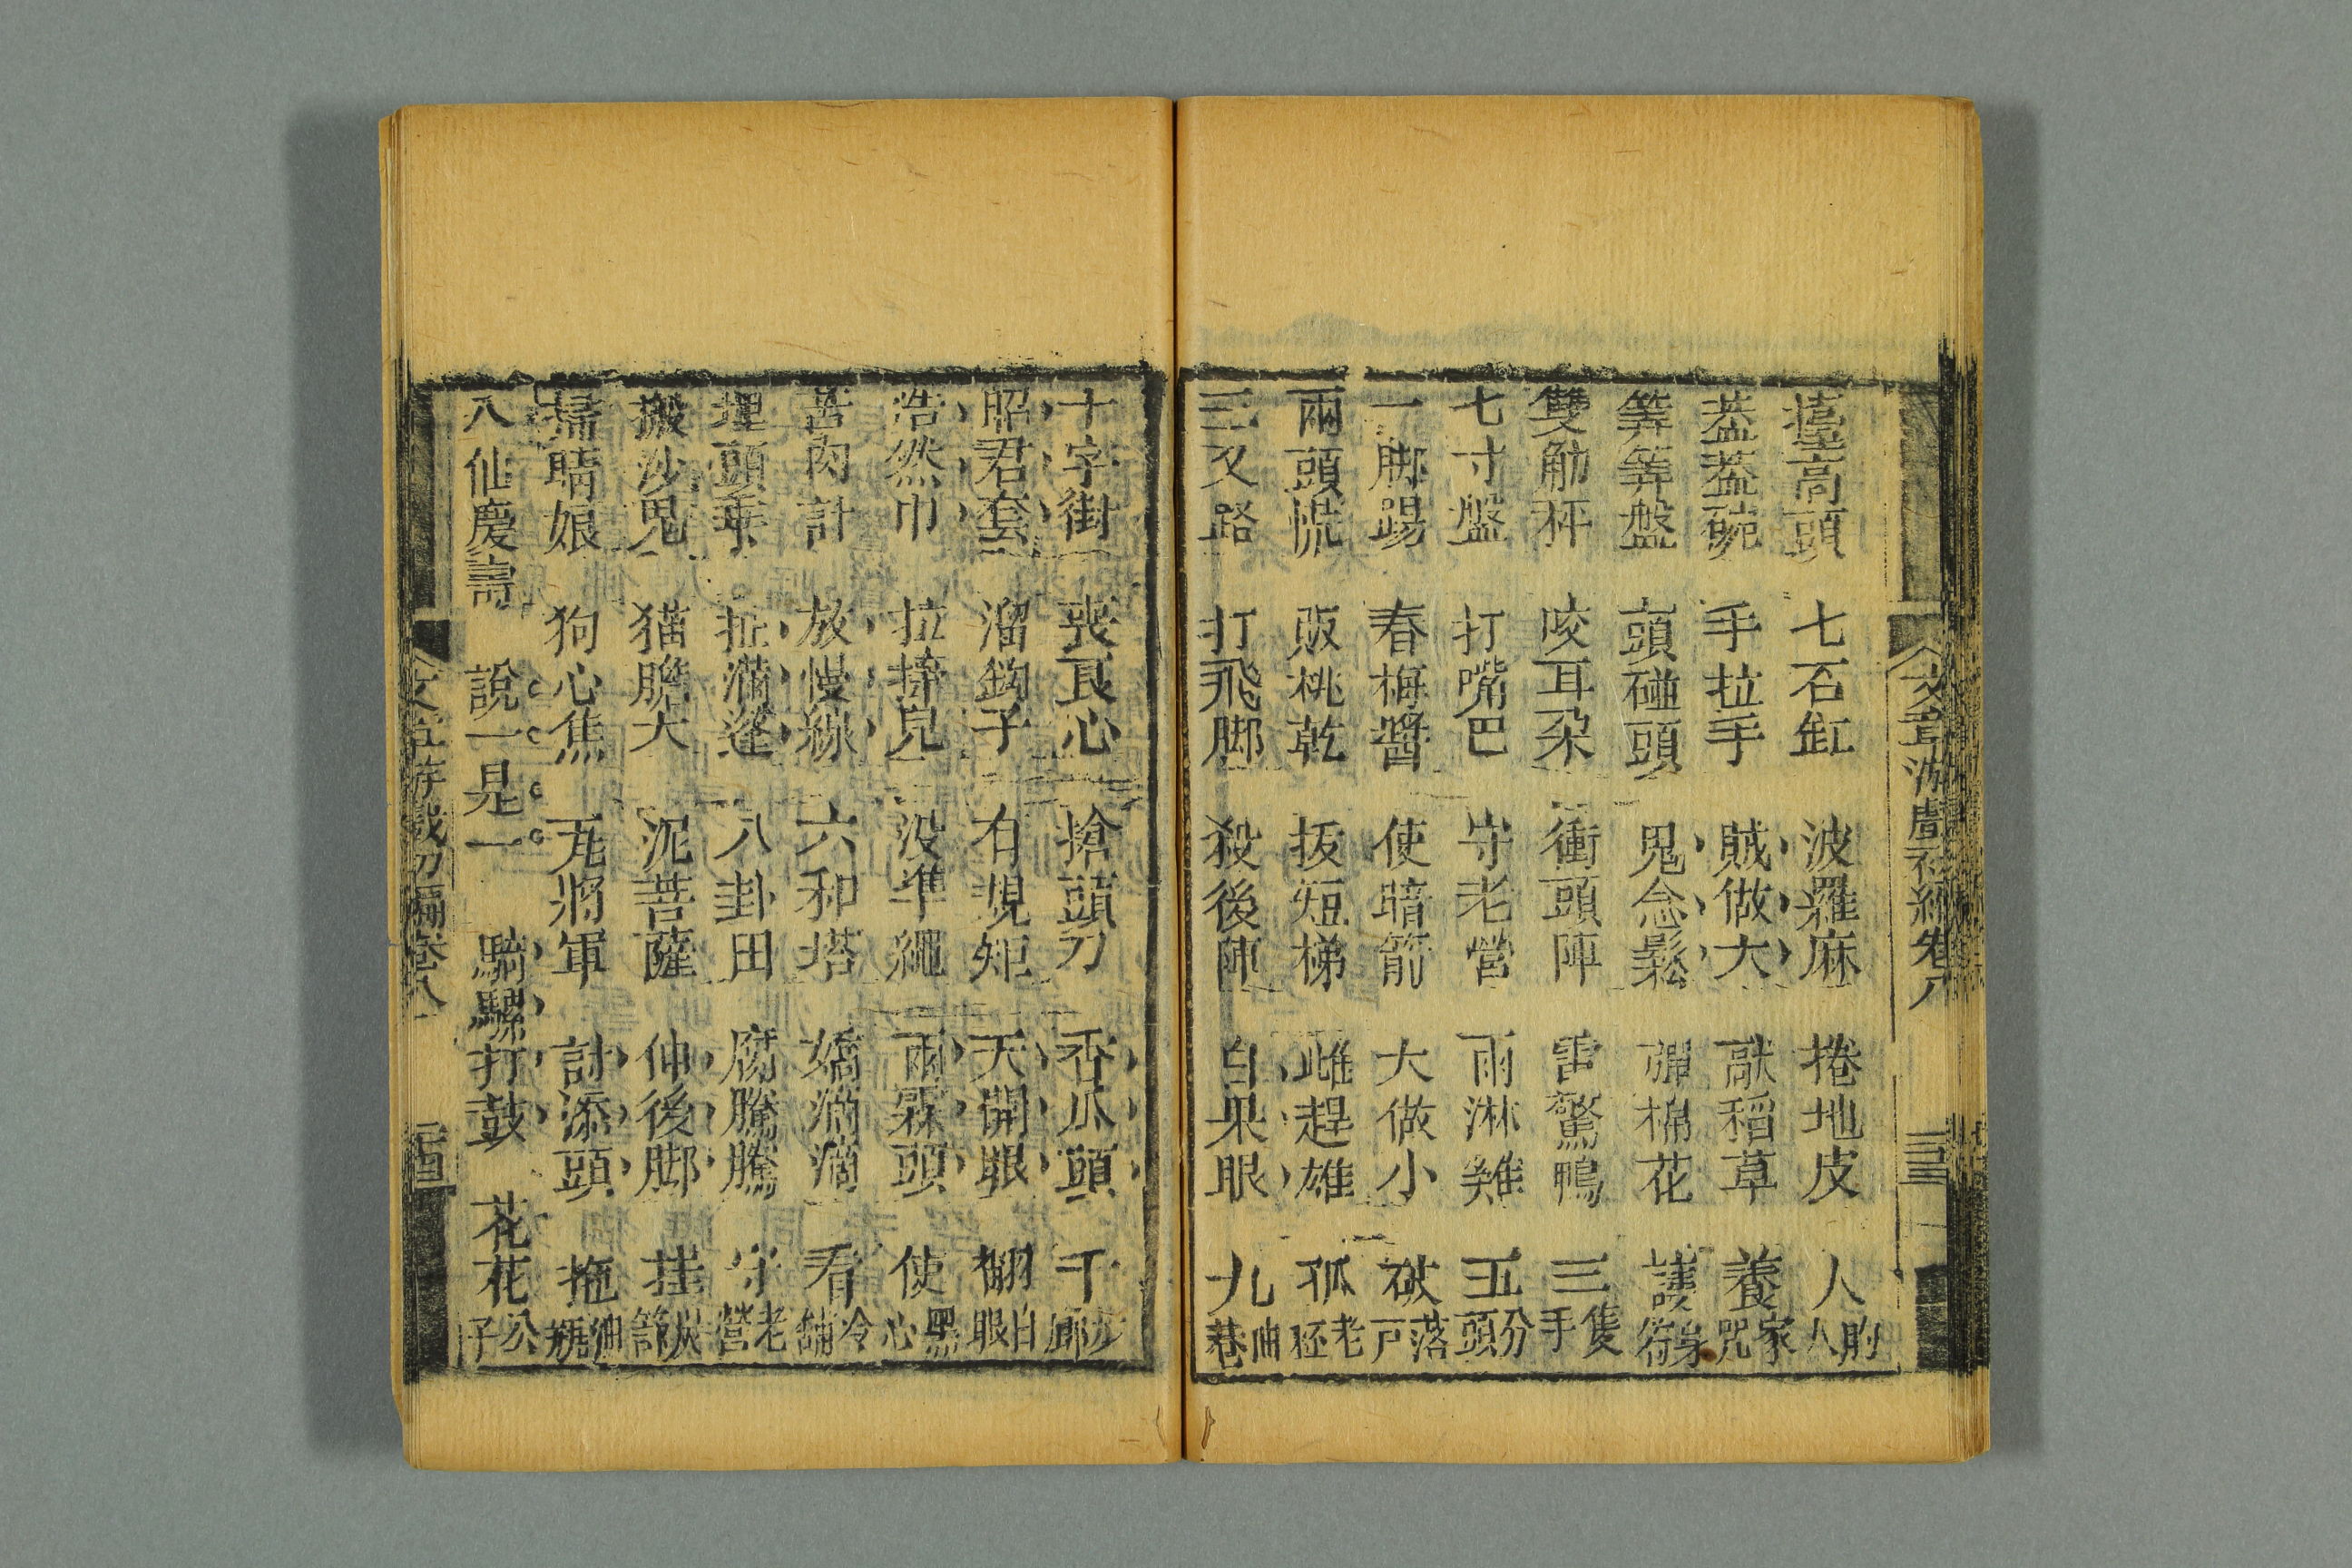 擡高頭 七石缸 波羅麻 捲地皮 人的人
葢葢碗 手拉手 賊做大 敲稻草 養家咒
筭筭盤 頭碰頭 鬼念鬆 彈棉花 護身符
雙觔秤 咬耳朶 衝頭陣 雷驚鴨 三隻手
七寸盤 打嘴巴 守老營 雨淋雞 五分頭
一脚踢 春梅醬 使暗箭 大做小 破落戸
兩頭慌 販桃乾 扳短梯 雌趕雄 孤老坯
三叉路 打飛脚 殺後陣 白果眼 九曲巷
十字街 喪良心 搶頭刀 香瓜頭 千
昭君套 溜鈎子 有規矩 天開眼 翻白眼
浩然巾 拉擠兒 没準繩 雨霖頭 使黑心
苦肉計 放慢線 六和塔 嬌滴滴 看冷舖
埋頭乖 扯滿篷 八卦田 腐騰騰 守老營
搬沙鬼 猫膽大 泥菩薩 伸後脚 挂炭篰
掃晴娘 狗心焦 瓦將軍 討添頭 拖油瓶
八仙慶壽 說一是一 騎騾打鼓 花花公子